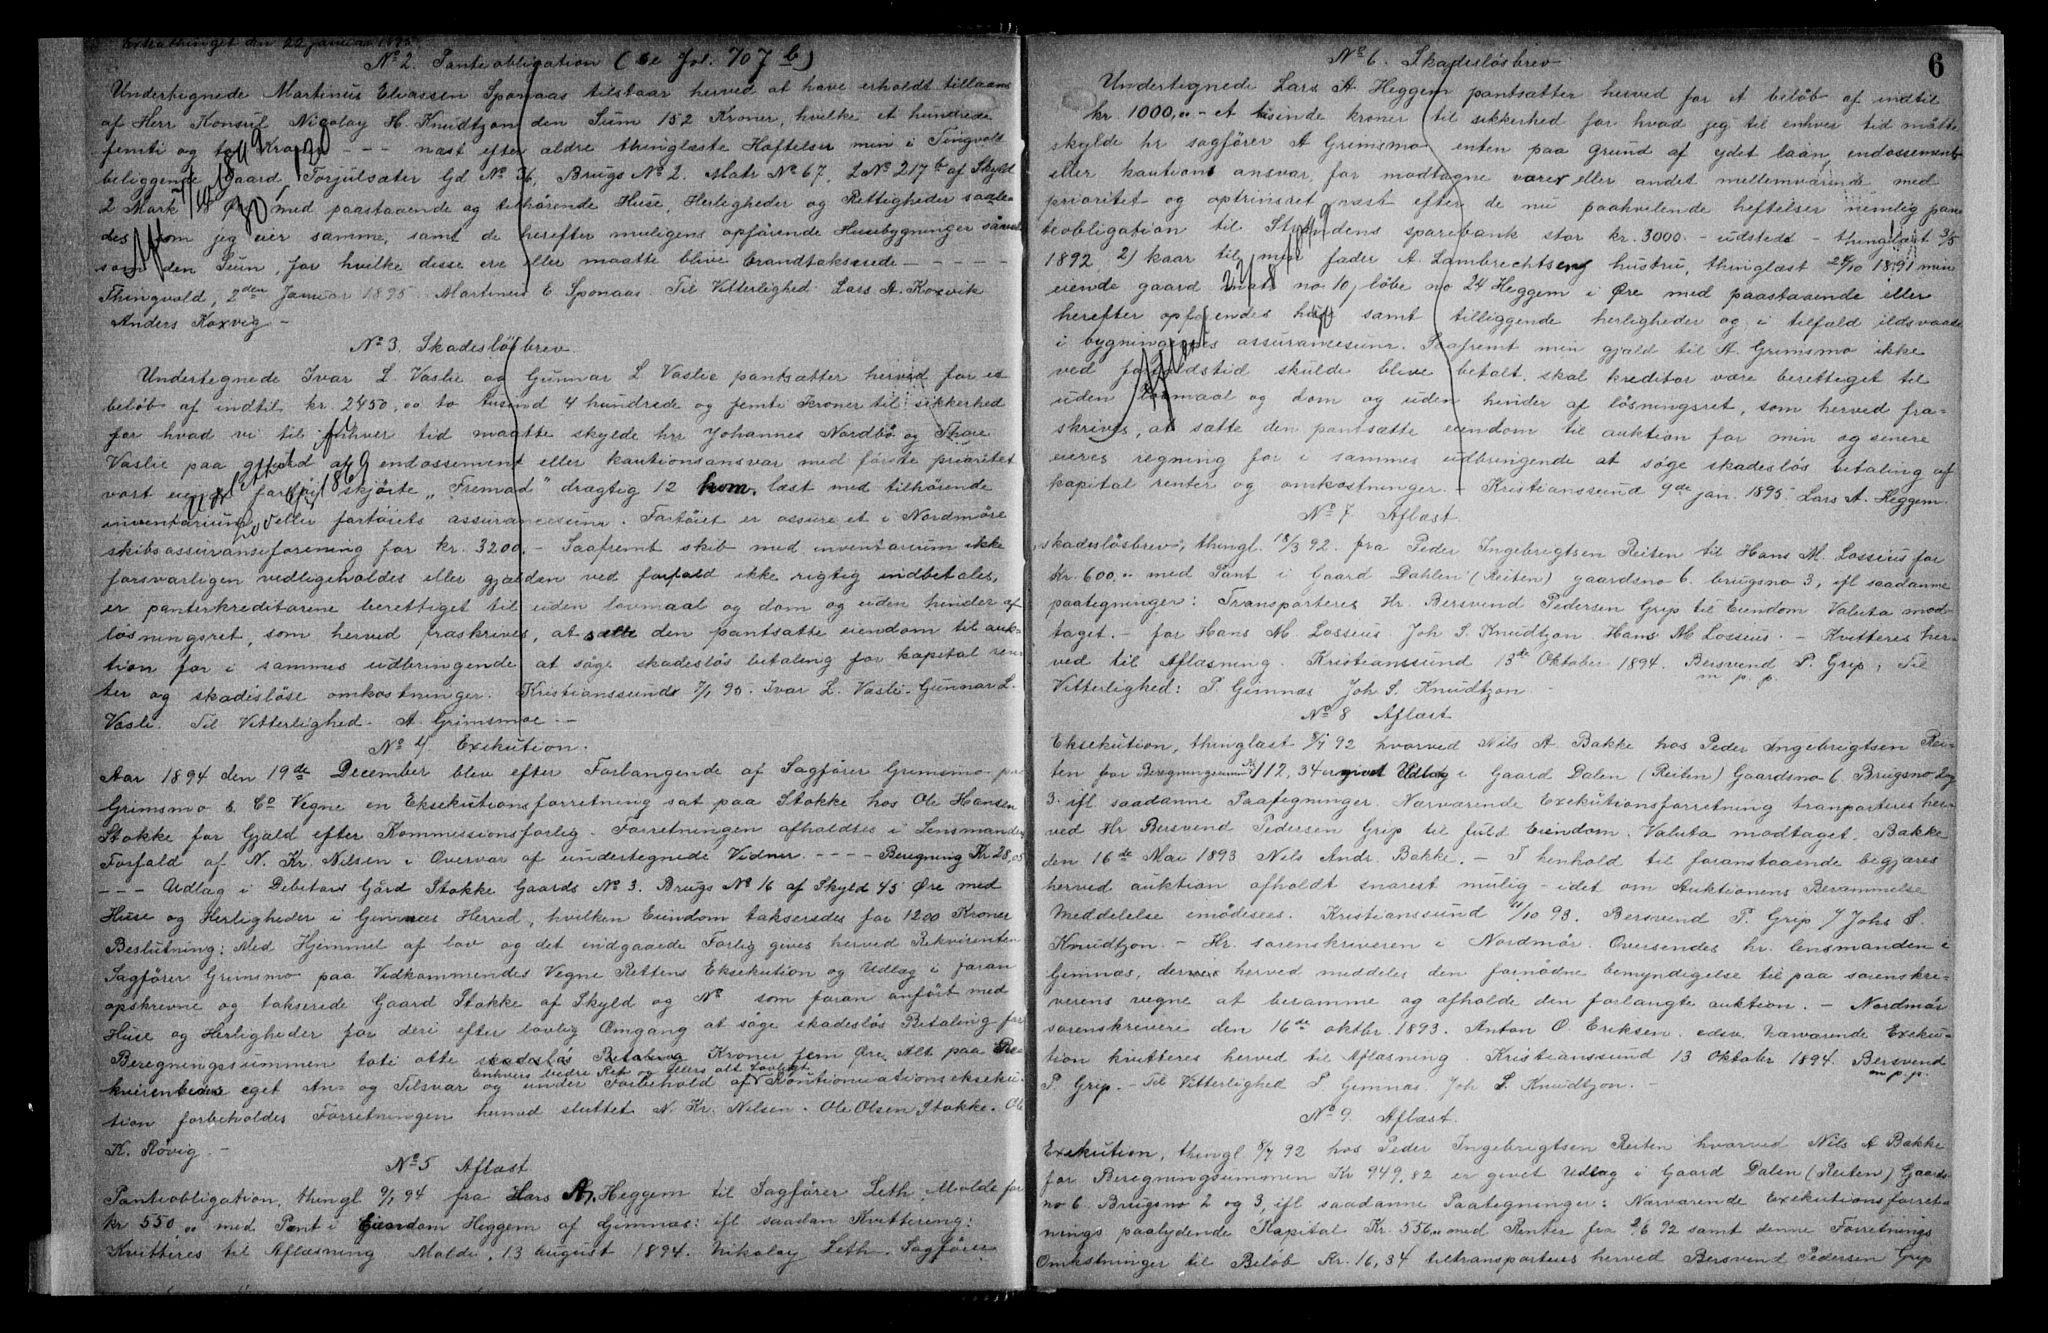 Extrathinget den 22 januar 1895.
No 2. Panteobligation (Se fol. 707 b)
Undertegnede Martinus Eliassen Sponaas tilstaar herved at have erholdt tillaans
af Herr Konsul Nicolay H. Knudtzon den Sum 152 Kroner, hvilke et hundrede
femti og to Kroner - - - næst efter ældre thinglæste Hæftelser min i Tingvold
beliggende Gaard Torjulsæter Gd No 36, Brugs No 2. Matr No 67, L No 217 b af Skyld
2 Mark Øre med paastaaende og tilhørende Huse, Herligheder og Rettigheder saale-
des som jeg eier samme, samt de herefter muligens opførende Husebygninger såvel
som den Sum, for hvilke disse ere eller maatte blive brandtakserede - - - - -
Thingvold, 2den Januar 1895. Martinus E Sponaas. Til Vitterlighed Lars A. Koxvik
Anders Koxvig -
No 3. Skadesløsbrev.
Undertegnede Ivar L. Vaslie og Gunnar L Vaslie pantsætter herved for et
beløb af indtil kr. 2450,00 to tusend 4 hundrede og femti Kroner til sikkerhed
for hvad vi til enhver tid maatte skylde hrr Johannes Nordbø og Thore
Vaslie paa grund af endossement eller kautionsansvar med første prioritet
vort eiende fartøi skjørte "Fremad" drægtig 12 kom. læst med tilhørende
inventarium eller fartøiets assurancesum. Fartøiet er assureret i Nordmøre
skibsassuranseforening for kr. 3200. - Saafremt skib med inventarium ikke
forsvarligen vedligeholdes eller gjælden ved forfald ikke rigtig indbetales,
er panterkreditorene berettiget til uden lovmaal og dom og uden hinder af
løsningsret, som herved fraskrives, at sætte den pantsatte eiendom til auk-
tion for i sammes udbringende at søge skadesløs betaling for kapital ren-
ter og skadesløse omkostninger. Kristianssund 7/1 95. Ivar L. Vasli. Gunnar L.
Vasli. Til Vitterlighed. A. Grimsmoe. -
No 4 Exekution.
Aar 1894 den 19de December blev efter Forlangende af Sagfører Grimsmo paa
Grimsmo & Co Vegne en Eksekutionsforretning sat paa Stokke hos Ole Hansen
Stokke for Gjæld efter Kommissionsforlig. Forretningen afholdtes i Lensmandens
Forfald af N. Kr. Nilsen i Overvær af undertegnede Vidner. - - - - Beregning Kr. 28,05
- - - Udlæg i Debitors Gård Stokke Gaards No 3. Brugs No 16 af Skyld 45 Øre med
Huse og Herligheder i Gimnæs Herred, hvilken Eiendom taksersdes for 1200 Kroner
Beslutning: Med Hjemmel af lov og det indgaaede Forlig gives herved Rekvirenten
Sagfører Grimsmo paa Vedkommendes Vegne Rettens Eksekution og Udlæg i foran
opskrevne og takserede Gaard Stokke af Skyld og No som foran anført med
Huse og Herligheder for deri efter lovlig Omgang at søge skadesløs Betaling for
Beregningssummen toti otte skadesløs Betaling Kroner fem Øre. Alt paa Re-
enhvers bedre Ret og ellers alt Lovligt.
kvirentens eget An- og Tilsvar og under Forbehold af Kontinuationsekseku-
tion forbeholdes Forretningen hermed sluttet N. Kr. Nilsen. Ole Olsen Stokke. Ole
K. Røvig. -
No 5 Aflæst
Panteobligation, thingl 9/1 94 fra Lars A. Heggem til Sagfører Leth, Molde for
kr 550,00 med Pant i Eiendom Heggem af Gimnæs: ifl saadan Kvittering:
Kvitteres til Aflæsning Molde, 13 august 1894. Nikolay Leth. Sagfører
6
No 6. Skadesløsbrev
Undertegnede Lars A Heggem pantsætter herved for et beløb af indtil
kr 1000,00 - et tusinde kroner til sikkerhed for hvad jeg til enhver tid måtte
skylde hr sagfører A Grimsmo enten paa grund af ydet laan, endossement
eller kautions ansvar, for modtagne varer eller andet mellemværende med
prioritet og optrinsret næst efter de nu paahvilende heftelser nemlig pan-
teobligation til Størdens sparebank stor kr. 3000. - udstedt - thinglæst 3/5
1892 2) kaar til min fader A. Lambrechtsens hustru, thinglæst 24/10 1891 min
eiende gaard matr no 10, løbe no 24 Heggem i Øre med paastaaende eller
herefter opførendes huse samt tilliggende herligheder og i tilfæld ildsvaade
i bygningernes assurancesum. Saafremt min gjæld til A. Grimsmo ikke
ved forfaldstid skulde blive betalt, skal kreditor være berettiget til
uden lovmaal og dom og uden hinder af løsningsret, som herved fra-
skrives, at sætte den pantsætte eiendom til auktion for min og senere
eieres regning for i sammes udbringende at søge skadesløs betaling af
kapital renter og omkostninger. - Kristianssund 9de jan. 1895 Lars A. Heggem.
No 7 Aflæst
skadesløsbrev, thingl. 18/3 92. fra Peder Ingebrigtsen Reiten til Hans M. Lossius for
Kr. 600,00 med Pant i Gaard Dahlen (Reiten) gaardsno 6. brugsno 3, ifl saadanne
paategninger: Transporteres Hr. Bersvend Pedersen Grip til Eiendom Valuta mod-
taget. - for Hans M. Lossius. Joh S. Knudtzon. Hans M Lossius. - Kvitteres her-
ved til Aflæsning. Kristianssund 13de Oktober 1894. Bersvend P. Grip, Til
m p. p.
Vitterlighed: P. Gimnæs Joh S. Knudtzon -
No 8 Aflæst
Eksekution, thinglæst 8/7 92 hvorved Nils A Bakke hos Peder Ingebrigtsen Rei-
ten for Beregningssum Kr 112,34 er givet Udlæg i Gaard Dalen (Reiten) Gaardsno 6. Brugsno 2 og
3. ifl saadanne Paategninger. Nærværende Exekutionsforretning tranporteres her-
ved Hr Bersvend Pedersen Grip til fuld Eiendom. Valuta modtaget. Bakke
den 16de Mai 1893 Nils Andr. Bakke. - I henhold til foranstaaende begjæres
herved auktion afholdt snarest mulig - idet om Auktionens Berammelse
Meddelelse imødesees. Kristianssund 11/10 93. Bersvend P. Grip / Johs S.
Knudtzon. - Hr. sorenskriveren i Nordmør. Oversendes hr. lensmanden i
Gimnæs, der herved meddeles den fornødne bemyndigelse til paa sorenskri-
verens vegne at beramme og afholde den forlangte auktion. - Nordmør
sorenskriveri den 16de oktbr. 1893. Anton O. Eriksen. edsv. Nærværende Exeku-
tion kvitteres herved til Aflæsning Kristianssund 13 Oktober 1894. Bersvend
m p. p.
P. Grip. - Til Vitterlighed P Gimnæs. Joh S. Knudtzon. -
No 9. Aflæst.
Exekution, thingl. 8/7 92 hos Peder Ingebrigtsen Reiten hvorved Nils A Bakke
for Beregningsummen Kr 949,82 er givet Udlæg i Gaard Dalen (Reiten) Gaards-
no 6. Brugsno 2 og 3, ifl saadanne Paategninger: Nærværende Exekutionsforret-
nings paalydende Kapital Kr. 556,00 med Renter fra 2/6 92 samt denne Forretnings
Omkstninger til Beløb Kr. 16,34 tiltransporteres herved Bersvend Pedersen Grip